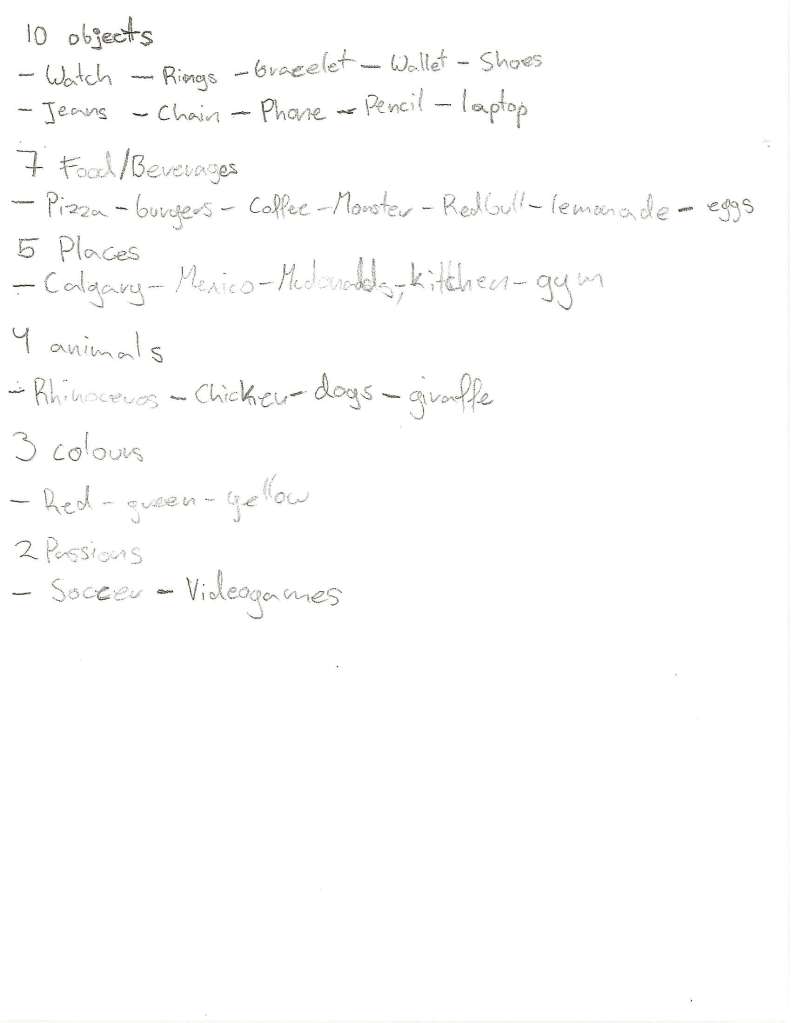 10 objects
- Watch - Rings - bracelet - Wallet - Shoes
- Jeans - Chain - Phone - Pencil - laptop
7 Food/Beverages
- Pizza - burgers - Coffee - Monster - Redbull - lemonade - eggs
5 Places
- Calgary - Mexico - Mcdonalds, - kittchen - gym
4 animals
- Rhinoceros - Chicken - dogs - giraffe
3 colours
- Red - green - yellow
2 Passions
- Soccer - Videogames